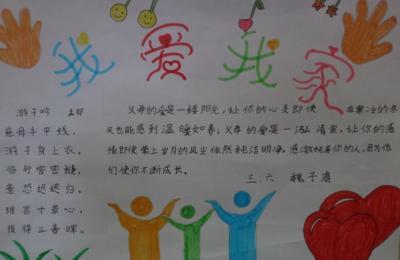 我爱我家
游子吟 孟郊
慈母手中线,
游子身上衣。
临行密密缝,
意恐迟迟归。
谁言寸草心,
报得三春晖。
父母的爱是一缕阳光,让你的心灵即使在寒冷的冬
天也能感到温暖如春;父母的爱是一泓清泉,让你的感
情即使蒙上岁月的风尘依然纯洁明净。感激抚养你的人,因为他
们使你不断成长。
三.六 魏子